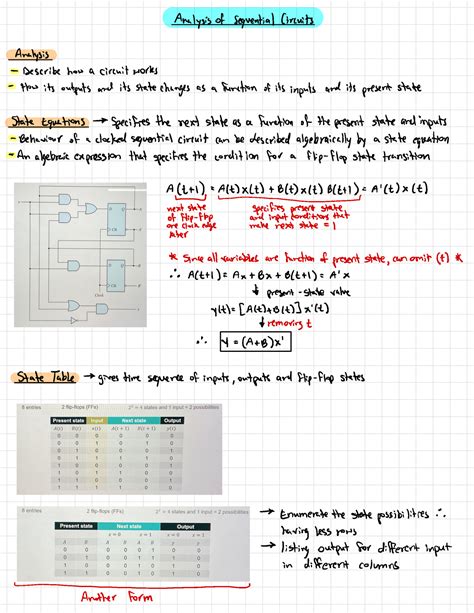 Analysis of Sequential Circuits
Analysis
- Describe how a circuit works
- How its outputs and its state changes as a function of its inputs and its present state
State Equations → Specifies the next state as a function of the present state and inputs
- Behaviour of a clocked sequential circuit can be described algebraically by a state equation
- An algebraic expression that specifies the condition for a flip-flop state transition
A(t+1) = A(t)x(t) + B(t)x(t) B(t+1) = A'(t)x(t)
next state of flip-flop one clock edge later
specifies present state and input conditions that make next state = 1
* Since all variables are function of present state, can omit (t) *
∴ A(t+1) = Ax + Bx + B(t+1) = A'x
↓ present-state value
y(t) = [A(t)+B(t)]x'(t)
↓ removing t
∴ y = (A+B)x'
Clock
State Table → gives time sequence of inputs, outputs and flip-flop states
8 entries 2 flip-flops (FFs) 2² = 4 states and 1 input = 2 possibilities
Present state Input Next state Output
A(t) B(t) x(t) A(t + 1) B(t + 1) y(t)
0 0 0 0 0 0
0 0 1 0 1 0
0 1 0 0 0 1
0 1 1 1 1 0
1 0 0 0 0 1
1 0 1 1 0 0
1 1 0 0 0 1
1 1 1 1 0 0
8 entries 2 flip-flops (FFs) 2² = 4 states and 1 input = 2 possibilities
Present state Next state Output
x = 0 x = 1 x = 0 x = 1
A B A B A B y y
0 0 0 0 0 1 0 0
0 1 0 0 1 1 1 0
1 0 0 0 1 0 1 0
1 1 0 0 1 0 1 0
→ Enumerate the state possibilities ∴
having less rows
→ listing output for different input
in different columns
Another Form